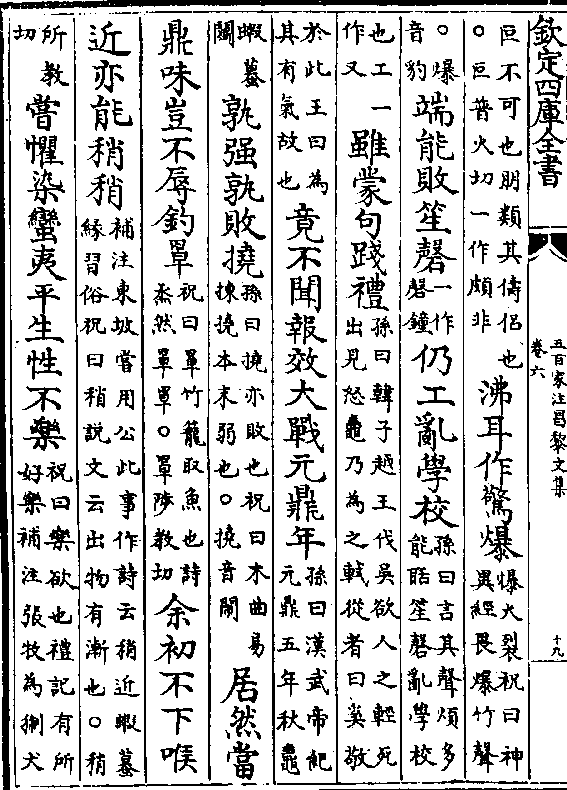 欽定四庫全書
五百家注昌黎文集
卷六
十九
叵不可也朋類其儔侶也
○叵普火切一作頗非
沸耳作驚爆
爆火裂祝曰神
異經畏爆竹聲
○爆
音豹
端能敗笙磬
一作
磬鐘
仍工亂學校
孫曰言其聲煩多
能聒笙磬亂學校
也工一
作又
雖蒙句踐禮
孫曰韓子越王伐吳欲人之輕死
出見怒鼃乃為之軾從者曰奚敬
於此王曰為
其有氣故也
竟不聞報效大戰元鼎年
孫曰漢武帝紀
元鼎五年秋鼃
蝦蟇
鬭
孰强孰敗撓
孫曰撓亦敗也祝曰木曲易
揀撓本末弱也○撓音鬧
居然當
鼎味豈不辱釣罩
祝曰罩竹籠取魚也詩
烝然罩罩○罩陟教切
余初不下喉
近亦能稍稍
補注東坡嘗用公此事作詩云稍近蝦蟇
緣習俗祝曰稍說文云出物有漸也○稍
所教
切
嘗懼染蠻夷平生性不樂
祝曰樂欲也禮記有所
好樂補注張牧為猘犬